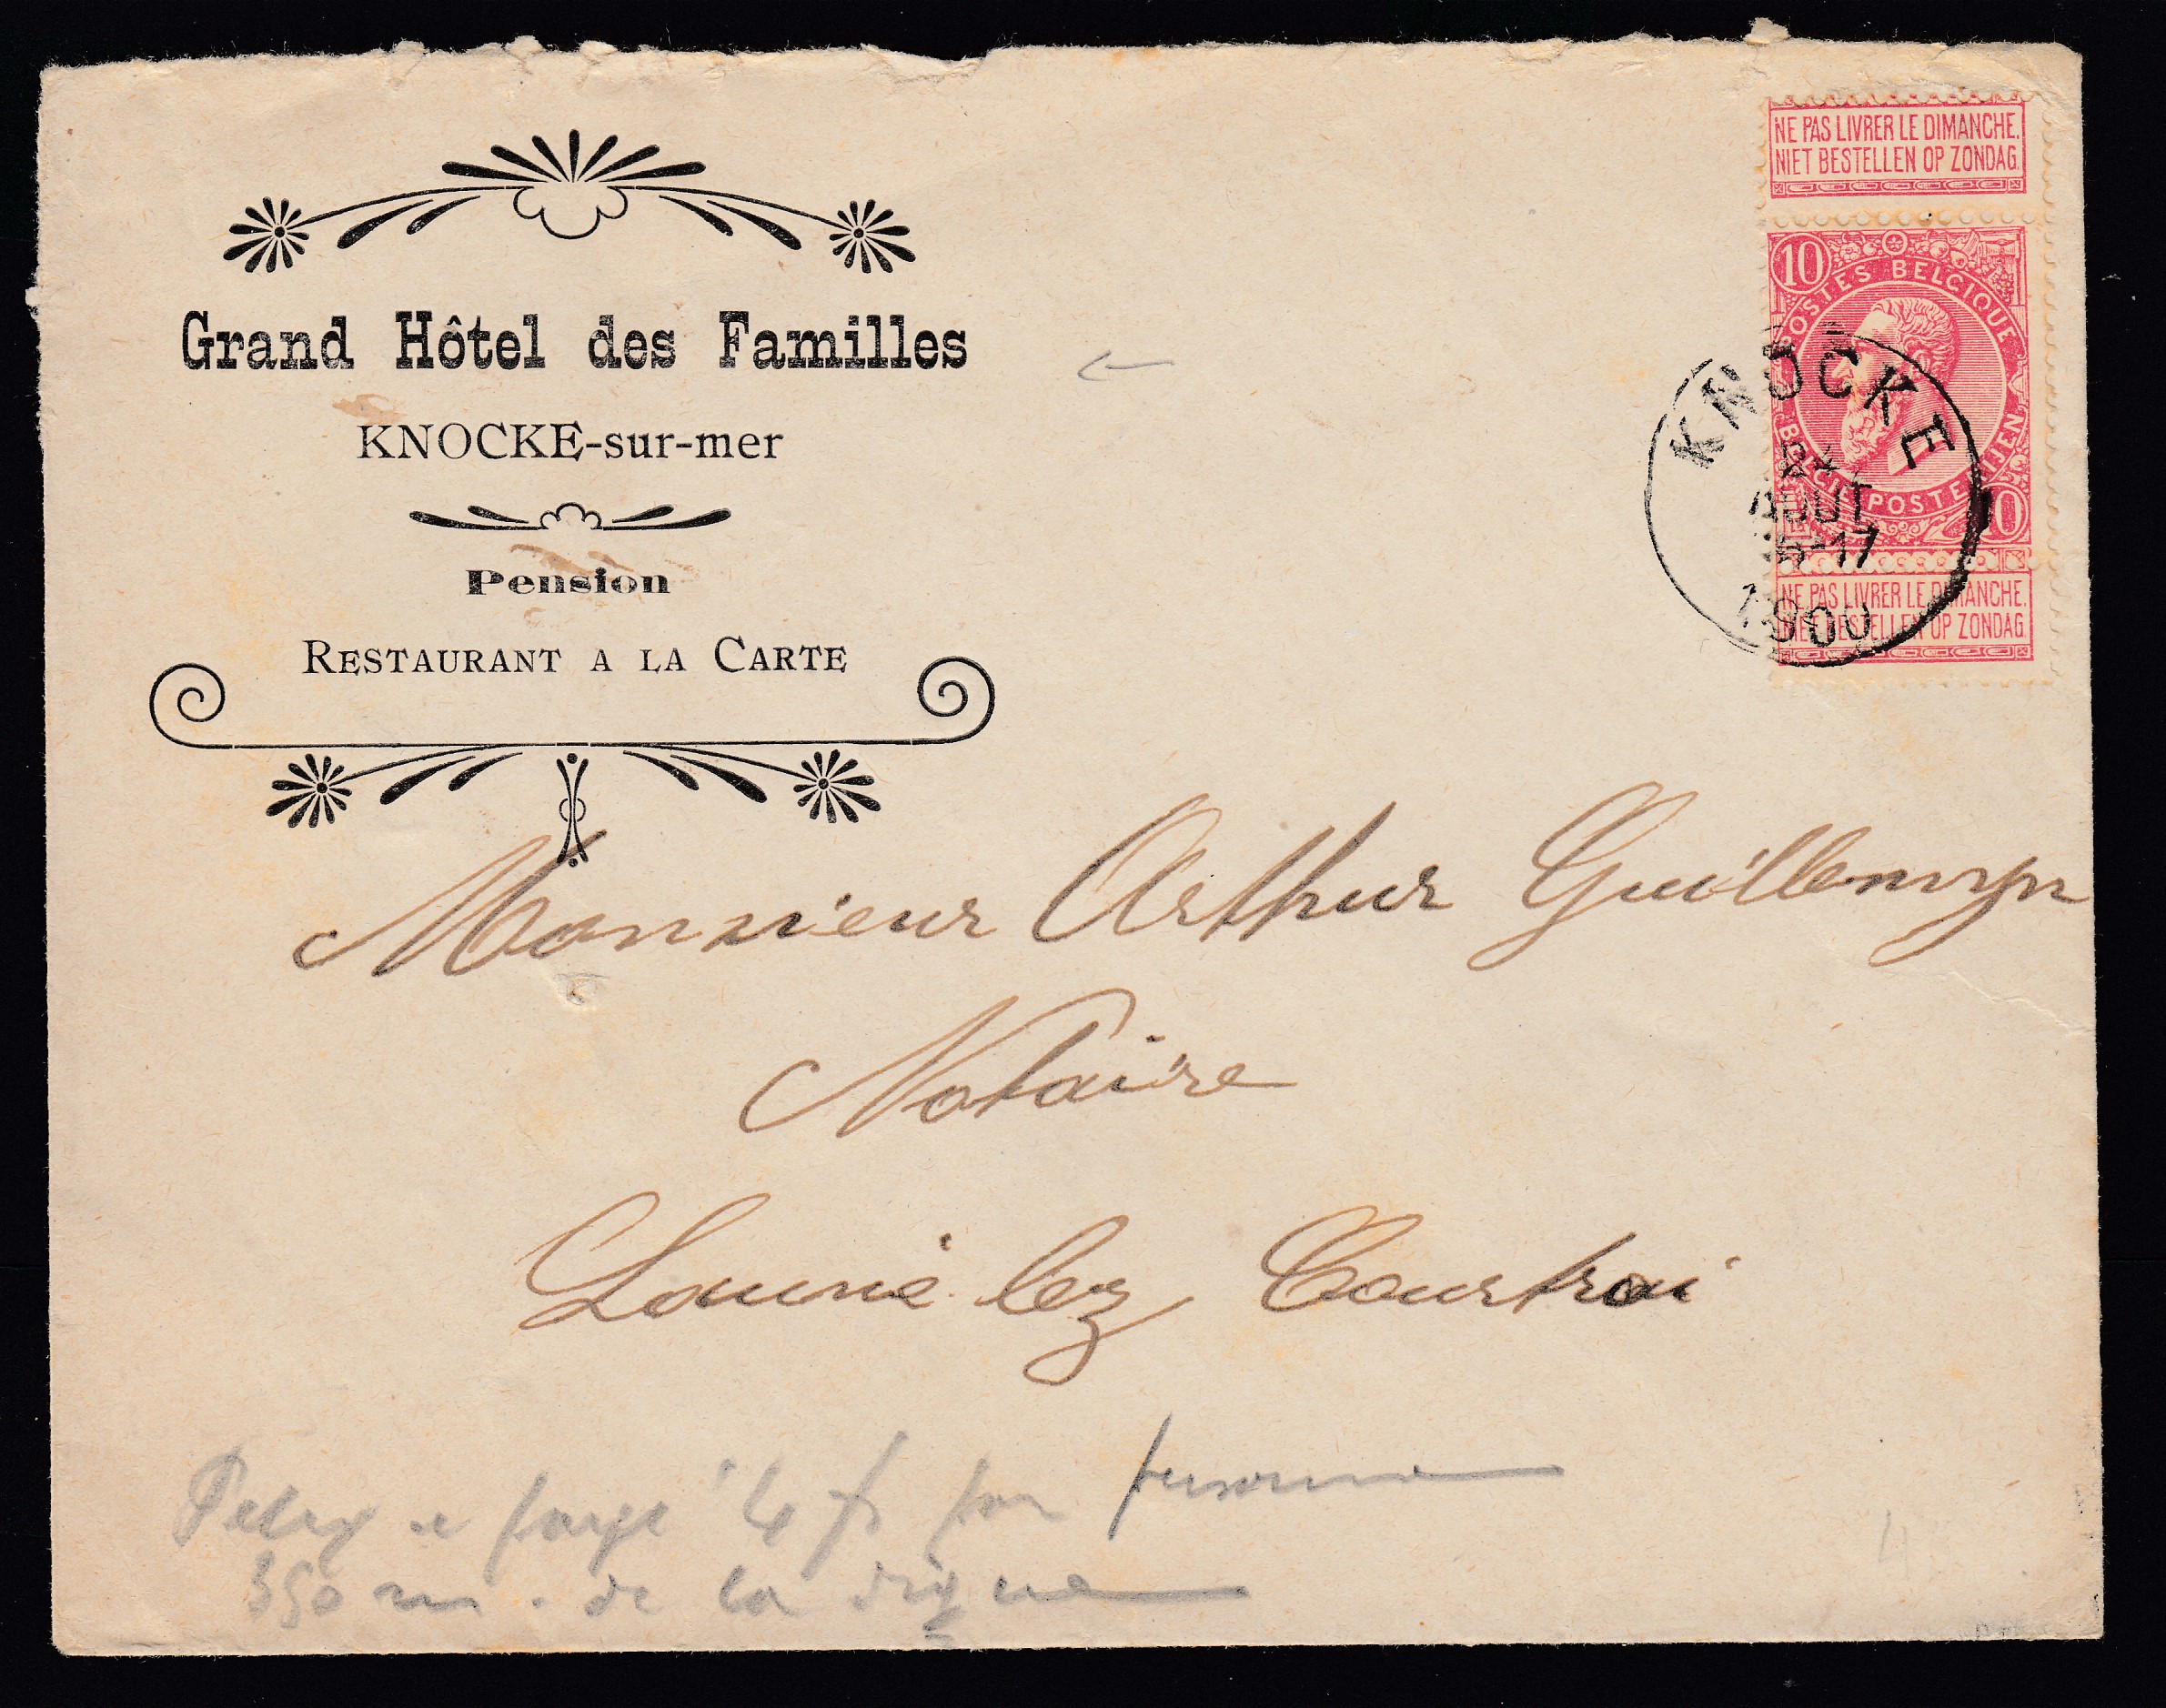 Grand Hôtel des Familles
KNOCKE-sur-mer
Pension
RESTAURANT A LA CARTE
NE PAS LIVRER LE DIMANCHE.
NIET BESTELLEN OP ZONDAG.
10
POSTES BELGIQUE
BELGIE POSTERIJEN
10
NE PAS LIVRER LE DIMANCHE.
NIET BESTELLEN OP ZONDAG.
KNOCKE
AOUT
1900
Monsieur Arthur Guillemyn
Notaire
Lauwe lez Courtrai
a payé 4 fr par personne
350 m. de la digue
4